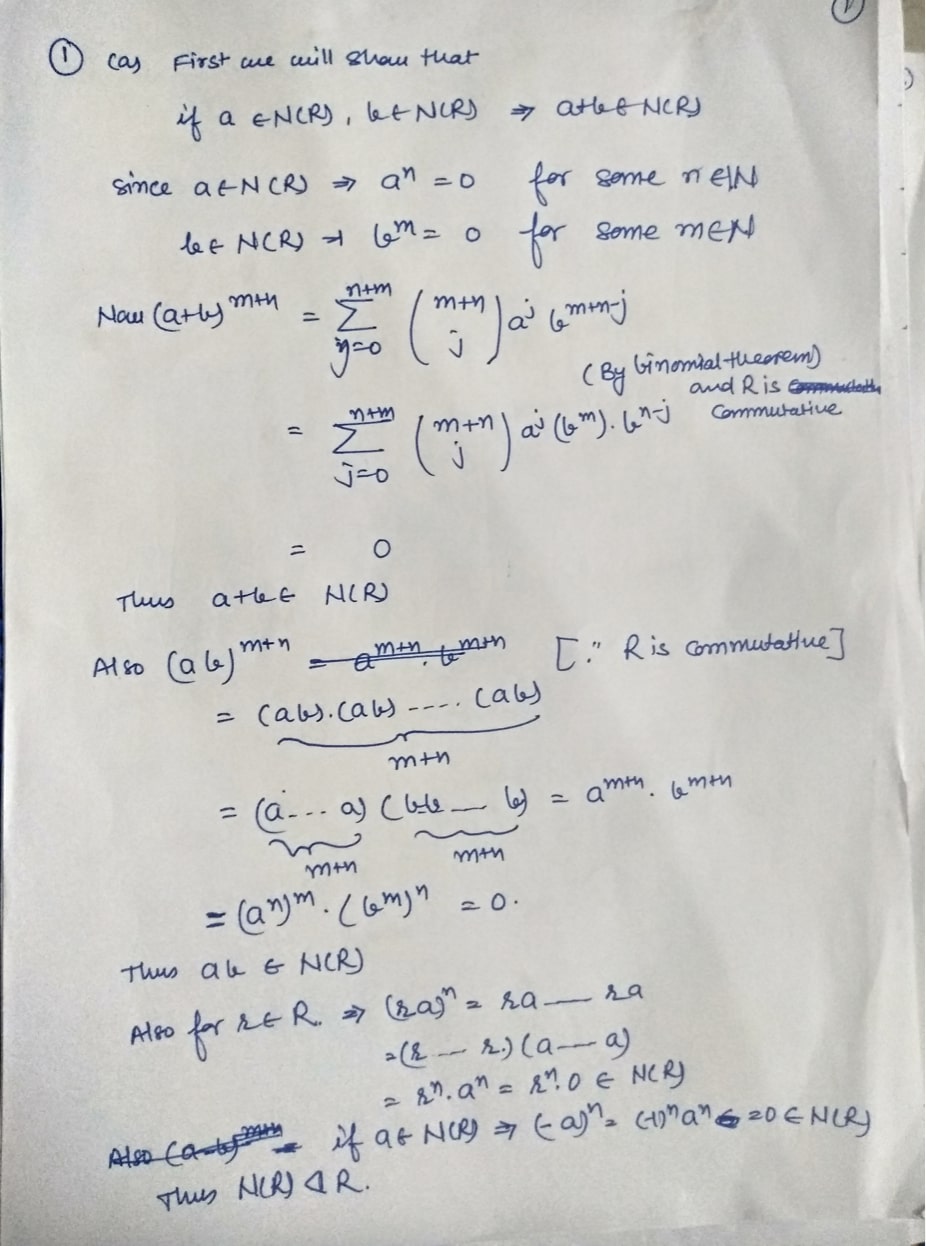 ① (a) First we will show that
if a ∈ N(R), b ∈ N(R) ⇒ a+b ∈ N(R)
since a ∈ N(R) ⇒ a^n = 0 for some n ∈ ℕ
b ∈ N(R) ⇒ b^m = 0 for some m ∈ ℕ
Now (a+b)^{m+n} = \sum_{j=0}^{n+m} \binom{m+n}{j} a^j b^{m+n-j}
(By binomial theorem)
and R is
commutative
= \sum_{j=0}^{n+m} \binom{m+n}{j} a^j (b^m). b^{n-j}
= 0
Thus a+b ∈ N(R)
Also (ab)^{m+n} = a^{m+n}. b^{m+n} [∵ R is commutative]
= (ab).(ab) ---- (ab)
m+n
= (a --- a) (bb — b) = a^{m+n}. b^{m+n}
m+n m+n
= (a^n)^m . (b^m)^n = 0.
Thus ab ∈ N(R)
Also for r ∈ R. ⇒ (ra)^n = ra — ra
= (r --- r.) (a — a)
= r^n. a^n = r^n. 0 ∈ N(R)
Also (a-b)^{m+n} = if a ∈ N(R) ⇒ (-a)^n = (-1)^n a^n = 0 ∈ N(R)
Thus N(R) ⊲ R.